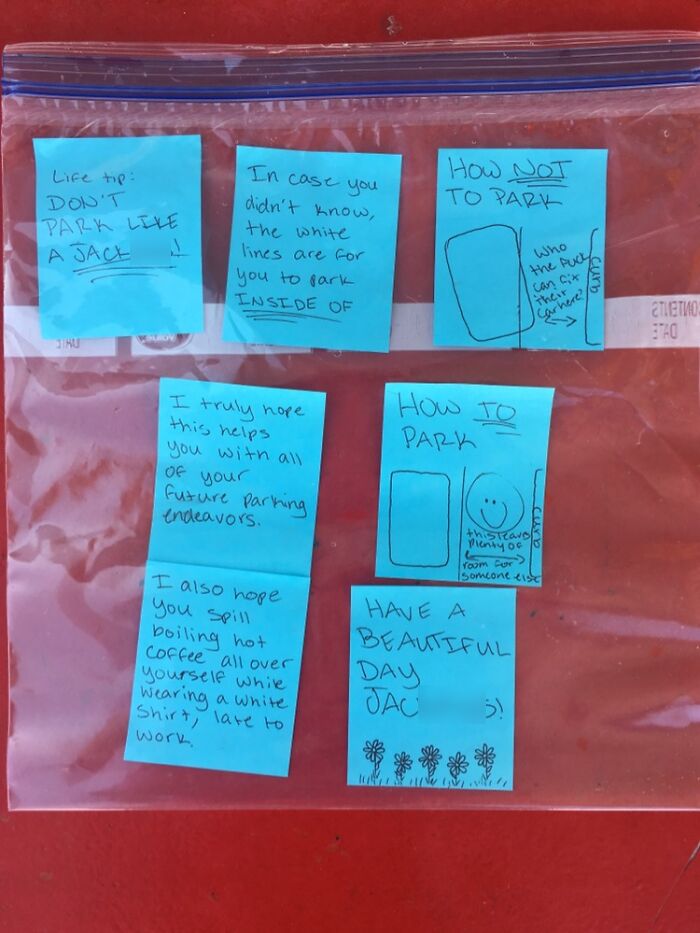 Life tip:
DON'T
PARK LIKE
A JACK !
In case you
didn't know,
the white
lines are for
you to park
INSIDE OF
HOW NOT
TO PARK
who
the fuck
can fix
their
car here?
curb
I truly hope
this helps
you with all
of your
future parking
endeavors.
HOW TO
PARK
this leaves
plenty of
room for
someone else
curb
I also hope
you spill
boiling hot
coffee all over
yourself while
wearing a white
shirt, late to
work.
HAVE A
BEAUTIFUL
DAY
JAC S!
CONTENTS
DATE
DATE